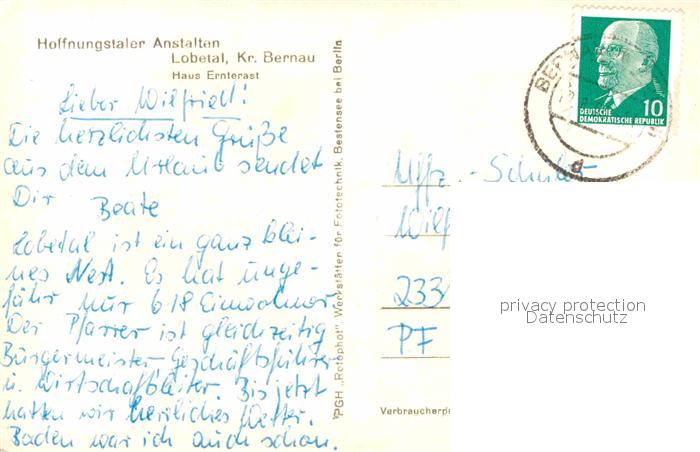 Hoffnungstaler Anstalten
Lobetal, Kr. Bernau
Haus Ernterast
Lieber Wilfried!
Die herzlichsten Grüße
aus dem Urlaub sendet
Dir Beate
Lobetal ist ein ganz klei-
nes Nest. Es hat unge-
fähr nur 618 Einwohner
Der Pfarrer ist gleichzeitig
Bürgermeister, Geschäftsführer
u. Wirtschaftsleiter. Bis jetzt
hatten wir herrliches Wetter.
Baden war ich auch schon.
PGH „Rotophot“, Werkstätten für Fototechnik, Bestensee bei Berlin
10
DEUTSCHE
DEMOKRATISCHE REPUBLIK
Uffz.-Schüler
Wilf
233
PF
privacy protection
Datenschutz
Verbraucherp